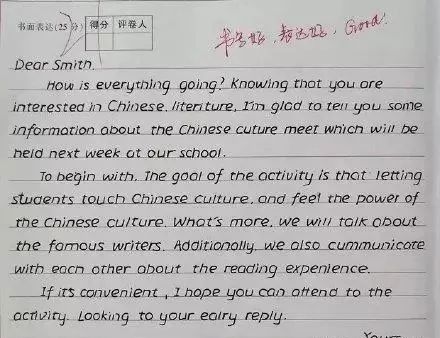 书面表达(25分) 得分 评卷人
书写好，表达好，Good!
Dear Smith,
How is everything going? Knowing that you are
interested in Chinese, literiture, I'm glad to tell you some
information about the Chinese cuture meet which will be
held next week at our school.
To begin with. The goal of the activity is that letting
students touch Chinese culture, and feel the power of
the Chinese culture. What's more, we will talk about
the famous writers. Additionally, we also cummunicate
with each other about the reading expenience.
If it's convenient, I hope you can attend to the
activity. Looking to your ealry reply.